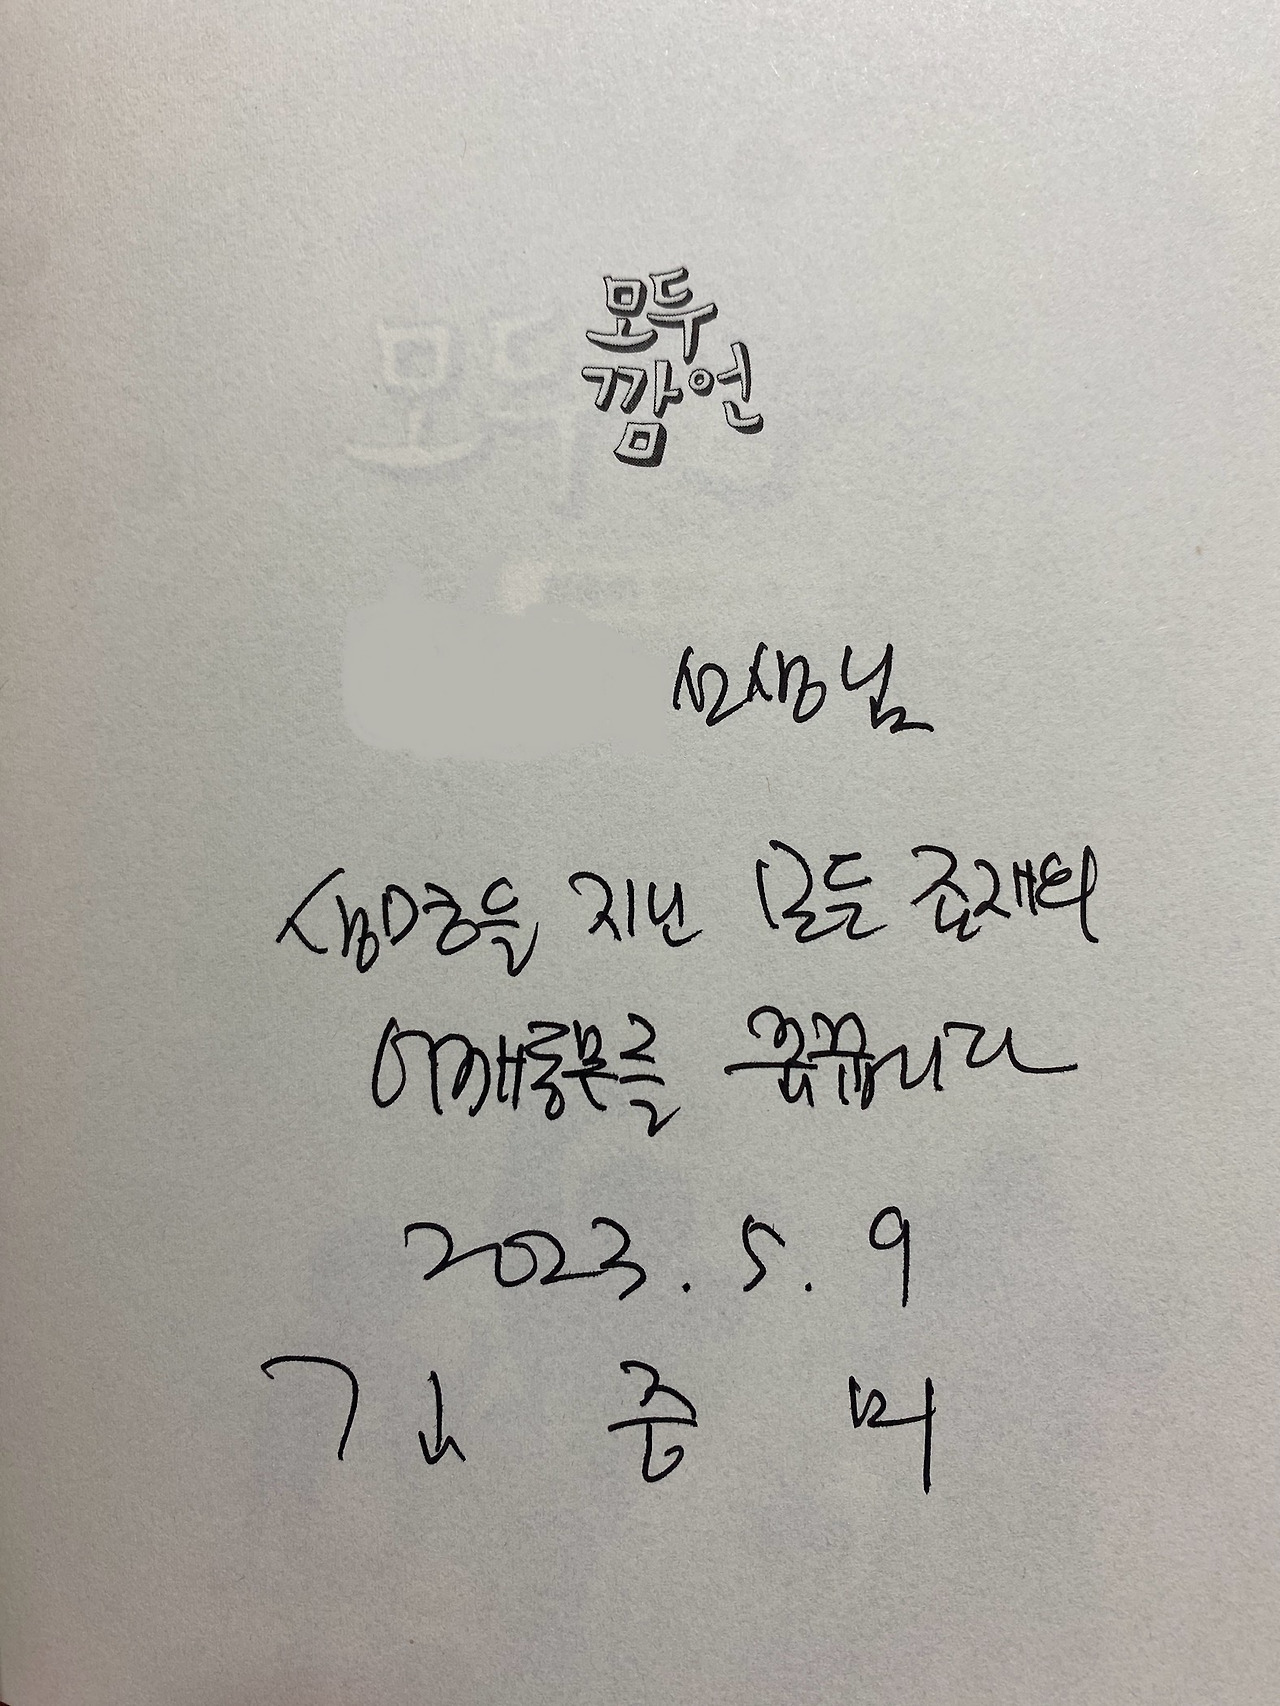 모두
깜언
선생님
생명을 지닌 모든 존재의
어깨동무를 꿈꿉니다
2023. 5. 9
김중미